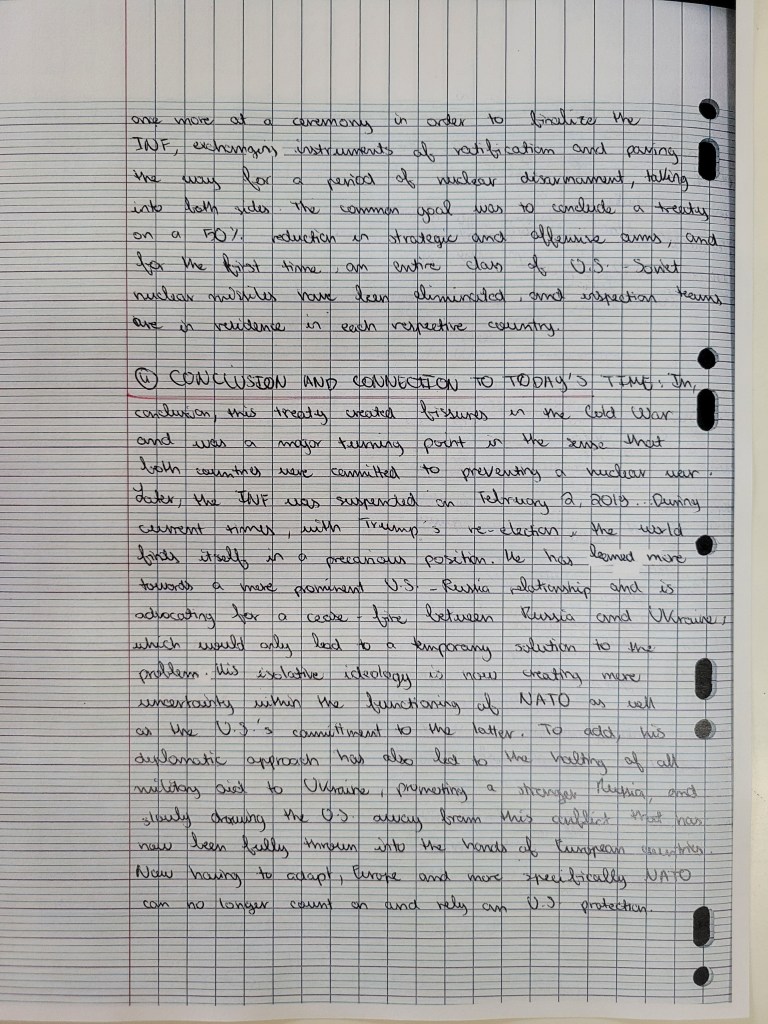 one more at a ceremony in order to finalize the
INF, exchanging instruments of ratification and paving
the way for a period of nuclear disarmament, talking
into both sides. The common goal was to conclude a treaty
on a 50% reduction in strategic and offensive arms, and
for the first time, an entire class of U.S. - Soviet
nuclear missiles have been eliminated, and inspection teams
are in residence in each respective country.
④ CONCLUSION AND CONNECTION TO TODAY'S TIME: In,
conclusion, this treaty created fissures in the Cold War
and was a major turning point in the sense that
both countries were committed to preventing a nuclear war.
Later, the INF was suspended on February 2, 2019... During
current times, with Trump's re-election, the world
finds itself in a precarious position. He has leaned more
towards a more prominent U.S. - Russia relationship and is
advocating for a cease-fire between Russia and Ukraine,
which would only lead to a temporary solution to the
problem. His isolative ideology is now creating more
uncertainty within the functioning of NATO as well
as the U.S.'s committment to the latter. To add, his
dyplomatic approach has also led to the halting of all
military aid to Ukraine, promoting a stronger Russia, and
slowly drawing the U.S. away from this conflict that has
now been fully thrown into the hands of European countries.
Now having to adapt, Europe and more specifically NATO
can no longer count on and rely on U.S. protection.